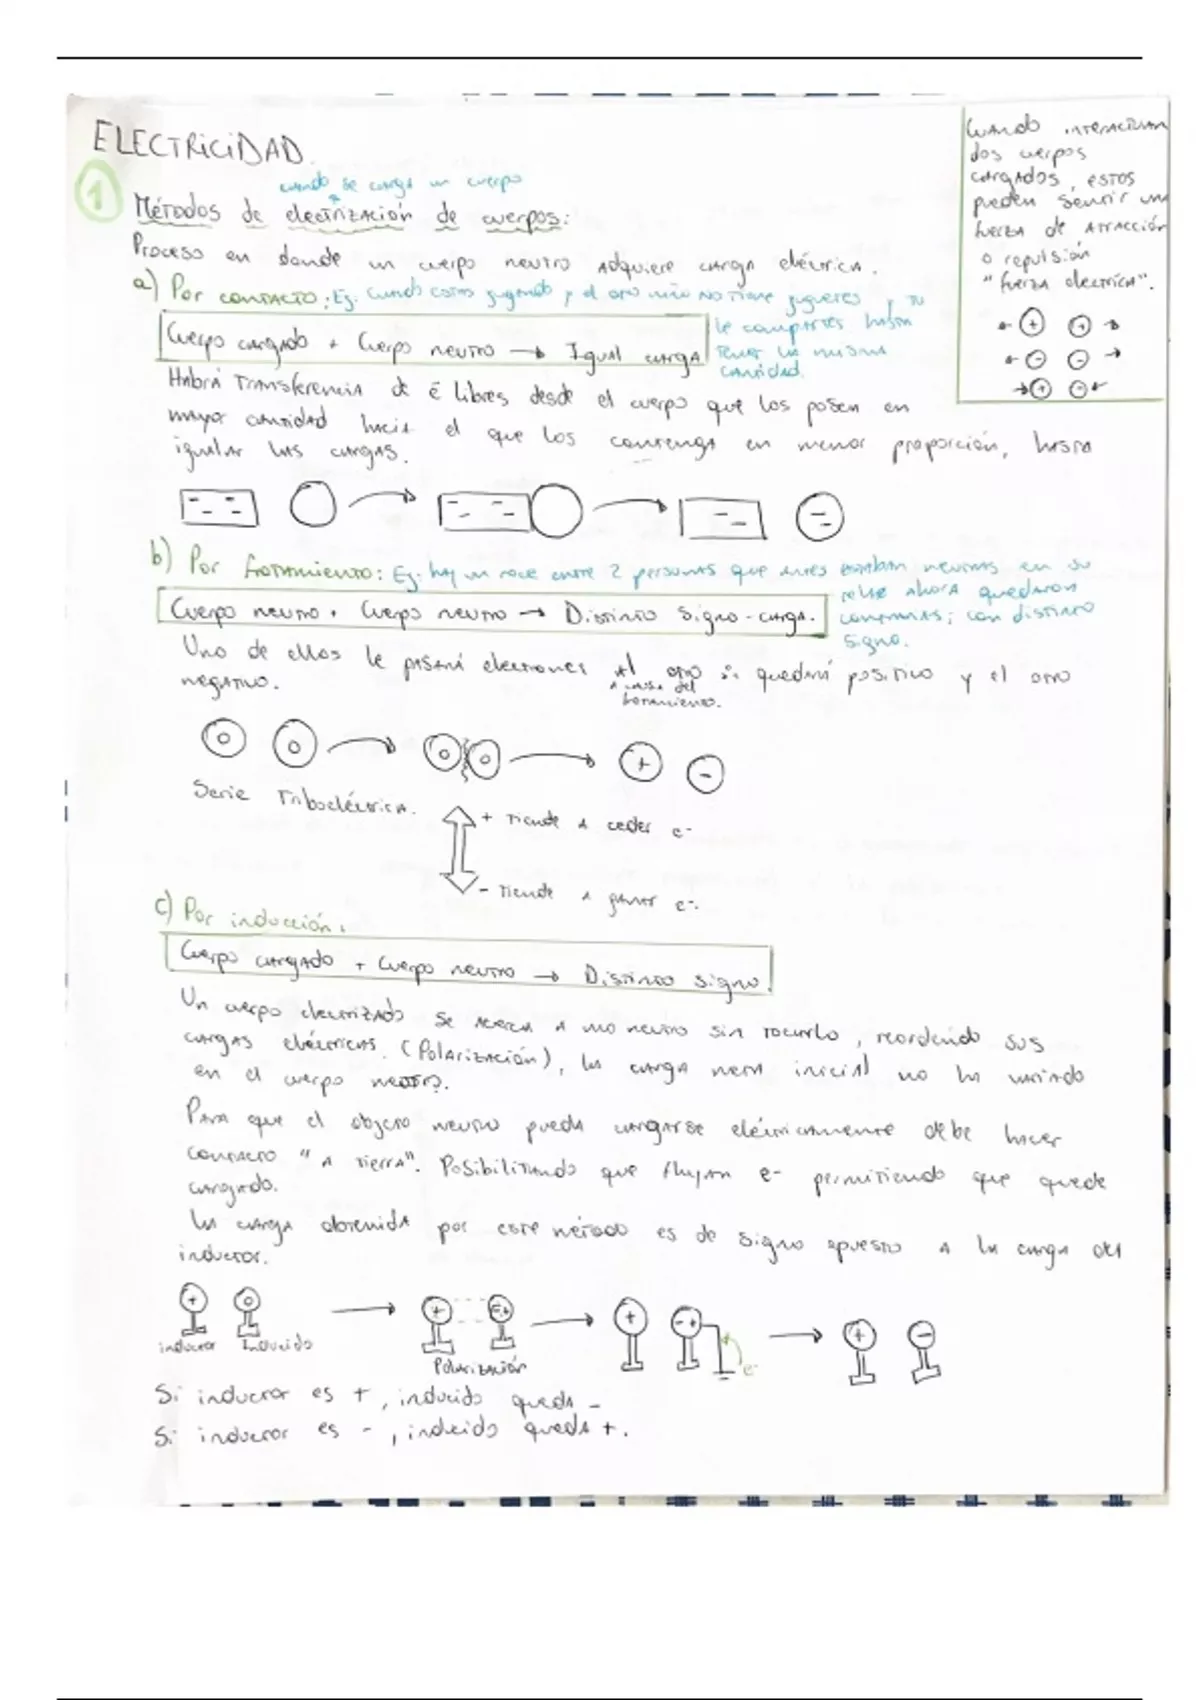 ELECTRICIDAD.
1
cuando se carga un cuerpo
Métodos de electrización de cuerpos:
Proceso en donde un cuerpo neutro adquiere carga eléctrica.
a) Por contacto: Ej. Cuando estas jugando y el otro niño no tiene juguetes, y tu
le compartes hasta
tener la misma
cantidad.
Cuerpo cargado + Cuerpo neutro → Igual carga
Habrá transferencia de e libres desde el cuerpo que los poseen en
mayor cantidad hacia el que los contenga en menor proporción, hasta
igualar las cargas.
Cuando interactúan
dos cuerpos
cargados, estos
pueden sentir una
fuerza de atracción
o repulsión
"fuerza electrica".
b) Por frotamiento: Ej. hay un roce entre 2 personas que antes estaban neutras en su
ahora quedaron
contrarias; con distinto
signo.
Cuerpo neutro + Cuerpo neutro → Distinto signo - carga.
Uno de ellos le pasará electrones al otro quedará positivo y el otro
a causa del
frotamiento.
negativo.
Serie Triboeléctrica.
+ tiende a ceder e-
- tiende a ganar e-.
c) Por inducción.
Cuerpo cargado + Cuerpo neutro → Distinto signo.
Un cuerpo electrizado se acerca a uno neutro sin tocarlo, reordendo sus
cargas eléctricas. (Polarización), la carga neta inicial no ha variado
en el cuerpo neutro.
Para que el objeto neutro pueda cargarse eléctricamente debe hacer
contacto "a tierra". Posibilitando que fluyan e- permitiendo que quede
cargado.
La carga obtenida por este método es de signo opuesto a la carga del
inductor.
inductor Inducido
Polarización
e-
Si inductor es +, inducido queda -
Si inductor es -, inducido queda +.